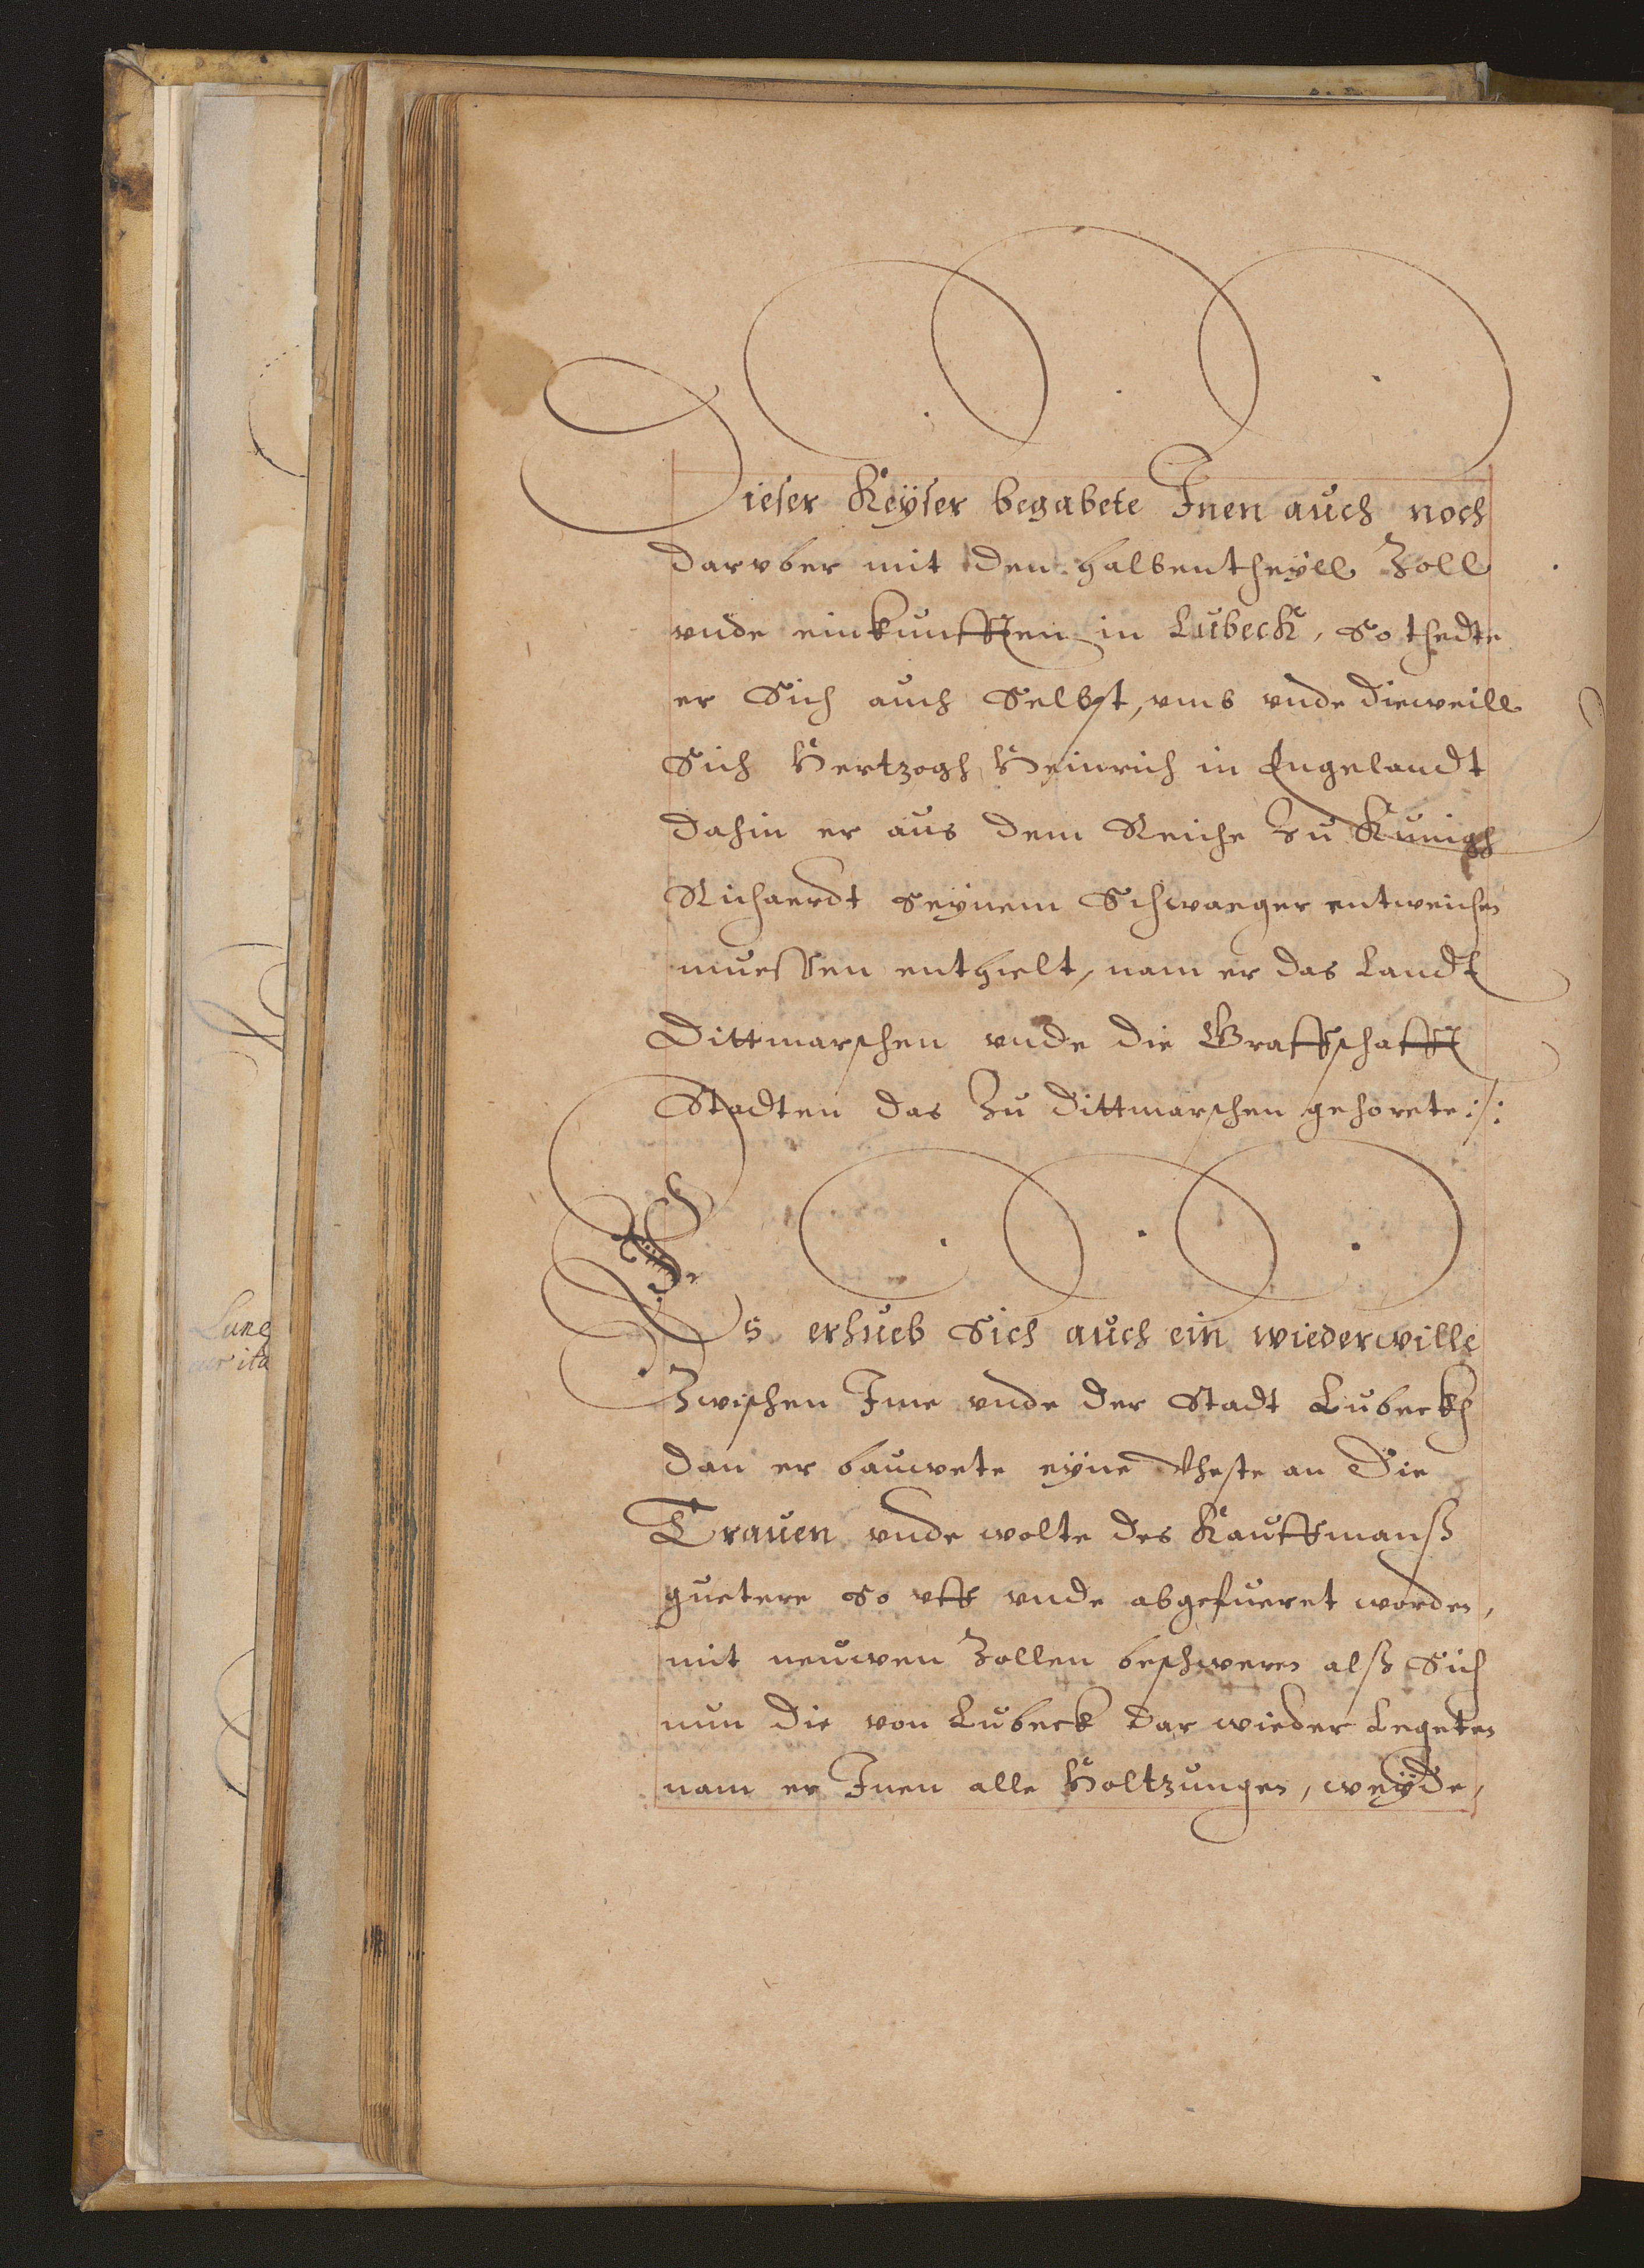 Dieser Keÿser begabete Inen auch noch
daruber mit den halbentheÿll Zoll
vnde einkunfften in Lubeck, so thedte
er Sich auch Selbst, vmb vnde dieweill
Sich Hertzogh Heinrich in Engelandt
dahin er aus dem Reiche zu Kunigh
Richaerdt seÿnem Schwaeger entweichen
muessen enthielt, nam er das Landt
Dittmarschen vnde die Graffschafft
Stadten das zu Dittmarschen gehorete :/:
Es erhueb Sich auch ein wiederwille
Zwischen Ime vnde der Stadt Lubeckh
dan er bauwete eÿne Vheste an die
Trauen vnde wolte des Kauffmanß
guetere so vff vnde abgefueret worden,
mit neuwen Zollen beschweren alß Sich
nun die von Lubeck dar wieder Legeten
nam er Inen alle Holtzungen, weÿde,
Lune